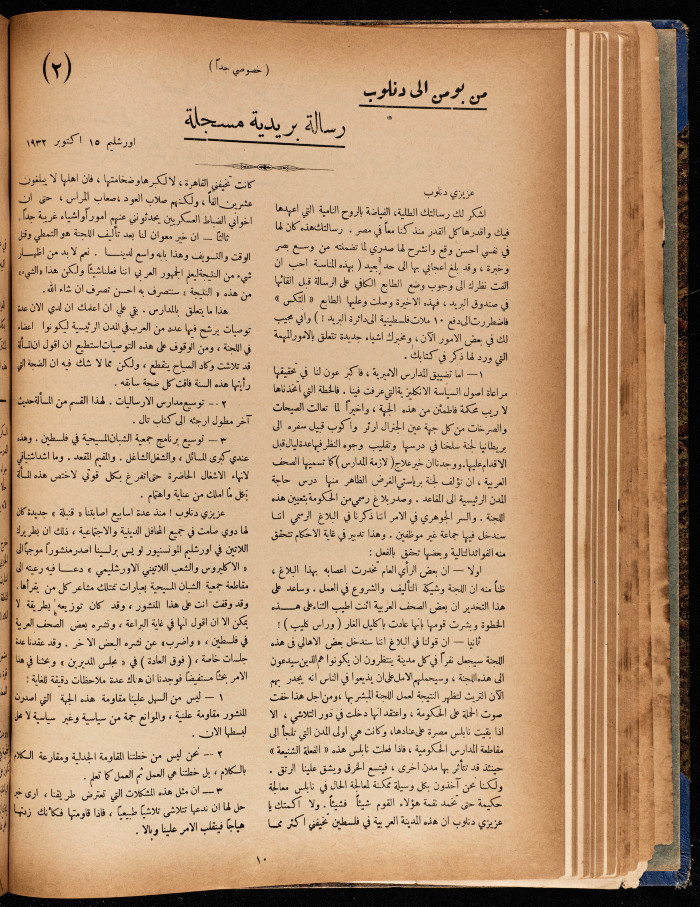 (٢)
( خصوصي جداً )
من بومن الى دنلوب
رسالة بريدية مسجلة
اورشليم ١٥ اكتوبر ١٩٣٢
عزيزي دنلوب
اشكر لك رسالتك الطلية، الفياضة بالروح النامية التي اعهدها
فيك واقدرها كل القدر منذ كنا معاً في مصر . رسالتك هذه كان لها
في نفسي احسن وقع وانشرح لها صدري لما تضمنته من وسع بصر
وخبرة ، وقد بلغ اعجابي بها الى حد بعيد ( بهذه المناسبة احب ان
الفت نظرك الى وجوب وضع الطابع الكافي على الرسالة قبل القائها
في صندوق البريد ، فهذه الاخيرة وصلت وعليها الطابع « التكس »
فاضطررت الى دفع ١٠ ملات فلسطينية الى دائرة البريد ! ) واني مجيب
لك في بعض الامور الآن ، ومخبرك اشياء جديدة تتعلق بالامور المهمة
التي ورد لها ذكر في كتابك .
١ — اما تضييق المدارس الاميرية ، فاكبر عون لنا في تحقيقها
مراعاة اصول السياسة الانكليزية التي عرفت فينا . فالخطة التي اتخذناها
لا ريب محكمة فاطمئن من هذه الجهة ، واخيراً لما تعالت الصيحات
والصرخات من كل جهة عين الجنرال ارثر واكوب قبيل سفره الى
بريطانيا لجنة سلخنا في درسها وتقليب وجوه النظر فيها عدة ليال قبل
الاقدام عليها. ووجدنا ان خير علاج (لازمة المدارس) كما تسميها الصحف
العربية ، ان نؤلف لجنة برياستي الغرض الظاهر منها درس حاجة
المدن الرئيسية الى المقاعد . وصدر بلاغ رسمي من الحكومة بتعيين هذه
اللجنة . والسر الجوهري في الامر اننا ذكرنا في البلاغ الرسمي اننا
سندخل فيها جماعة غير موظفين . وهذا تدبير في غاية الاحكام تتحقق
منه الفوائد التالية وبعضها تحقق بالفعل :
اولا — ان بعض الرأي العام تخدرت اعصابه بهذا البلاغ ،
ظناً منه ان اللجنة وشيكة التأليف والشروع في العمل . وساعد على
هذا التخدير ان بعض الصحف العربية اثنت اطيب الثناء على هذه
الخطوة وبشرت قومها بانها عادت باكليل الغار ( وراس كليب ) !
ثانيا — ان قولنا في البلاغ اننا سندخل بعض الاهالي في هذه
اللجنة سيجعل نفراً في كل مدينة ينتظرون ان يكونوا هم الذين سيدعون
الى هذه اللجنة ، وسيحملهم الامل على ان يذيعوا في الناس انه يجدر بهم
الآن التريث لتظهر النتيجة لعمل اللجنة المبشر بها ، ومن اجل هذا خفت
صوت الحملة على الحكومة ، واعتقد انها دخلت في دور التلاشي ، الا
اذا بقيت نابلس مصرة على عنادها، وكانت هي اولى المدن التي تلجأ الى
مقاطعة المدارس الحكومية ، فاذا فعلت نابلس هذه « الفعلة الشنيعة »
حينئذ قد تتأثر بها مدن اخرى ، فيتسع الخرق ويشق علينا الرتق .
ولكننا نحن آخذون بكل وسيلة ممكنة لمعالجة الحال في نابلس معالجة
حكيمة حتى تخمد نقمة هؤلاء القوم شيئاً فشيئاً . ولا أكتمك يا
عزيزي دنلوب ان هذه المدينة العربية في فلسطين تخيفني اكثر مما
كانت تخيفني القاهرة ، لا لكبرها وضخامتها ، فان اهلها لا يبلغون
عشرين الفاً ، ولكنهم صلاب العود ، صعاب المراس ، حتى ان
اخواني الضباط العسكريين يحدثونني عنهم اموراً واشياء غريبة جداً .
ثالثاً — ان خير معوان لنا بعد تأليف اللجنة هو التمطي وقتل
الوقت والتسويف وهذا بابه واسع لدينا . نعم لا بد من اظهار
شيء من النتيجة ليعلم الجمهور العربي اننا فعلنا شيئاً ولكن هذا والشيء
من هذه « النتيجة » سنتصرف به احسن تصرف ان شاء الله .
هذا ما يتعلق بالمدارس . بقي علي ان اعلمك ان لدي الان عدة
توصيات يرشح فيها عدد من العرب في المدن الرئيسية ليكونوا اعضاء
في اللجنة ، ومن الوقوف على هذه التوصيات استطيع ان اقول ان المسألة
قد تلاشت وكاد الصياح ينقطع ، ولكن مما لا شك فيه ان الضجة التي
رأيتها هذه السنة فاقت كل ضجة سابقه .
٢ — توسيع مدارس الارساليات . لهذا القسم من المسألة حديث
آخر مطول ارجئه الى كتاب تال .
٣ — توسيع برنامج جمعية الشبان المسيحية في فلسطين . وهذه
عندي كبرى المسائل ، والشغل الشاغل . والمقيم المقعد . وما اشد اشتياقي
لانهاء الاشغال الحاضرة حتى اتفرغ بكل قوتي لاختص هذه المسألة
بكل ما املك من عناية واهتمام .
عزيزي دنلوب ! منذ عدة اسابيع اصابتنا « قنبلة » جديدة كان
لها دوي صامت في جميع المحافل الدينية والاجتماعية ، ذلك ان بطريرك
اللاتين في اورشليم المونسنيور لويس برلسينا اصدر منشوراً موجهاً الى
« الاكليروس والشعب اللاتيني الاورشليمي » دعا فيه رعيته الى
مقاطعة جمعية الشبان المسيحية بعبارات تمتلك مشاعر كل من يقرأها .
وقد وقفت انت على هذا المنشور ، وقد كان توزيعه بطريقة لا
يمكن الا ان اقول انها في غاية البراعة ، ونشره بعض الصحف العربية
في فلسطين ، « واضرب» عن نشره البعض الاخر . وقد عقدنا عدة
جلسات خاصة ، ( فوق العادة ) في « مجلس المديرين » وبحثنا في هذا
الامر بحثاً مستفيضاً فوجدنا ان هناك عدة ملاحظات دقيقة للغاية :
١ — ليس من السهل علينا مقاومة هذه الجهة التي اصدرت
المنشور مقاومة علنية ، والموانع جمة من سياسية وغير سياسية لا محل
لبسطها الان .
٢ — نحن ليس من خطتنا المقاومة الجدلية ومقارعة الكلام
بالكلام ، بل خطتنا هي العمل ثم العمل كما تعلم .
٣ — ان مثل هذه المشكلات التي تعترض طريقنا ، ارى خير
حل لها ان ندعها تتلاشى تلاشياً طبيعياً ، فاذا قاومتها فكأنك زدتها
هياجاً فينقلب الامر علينا وبالا .
١٠